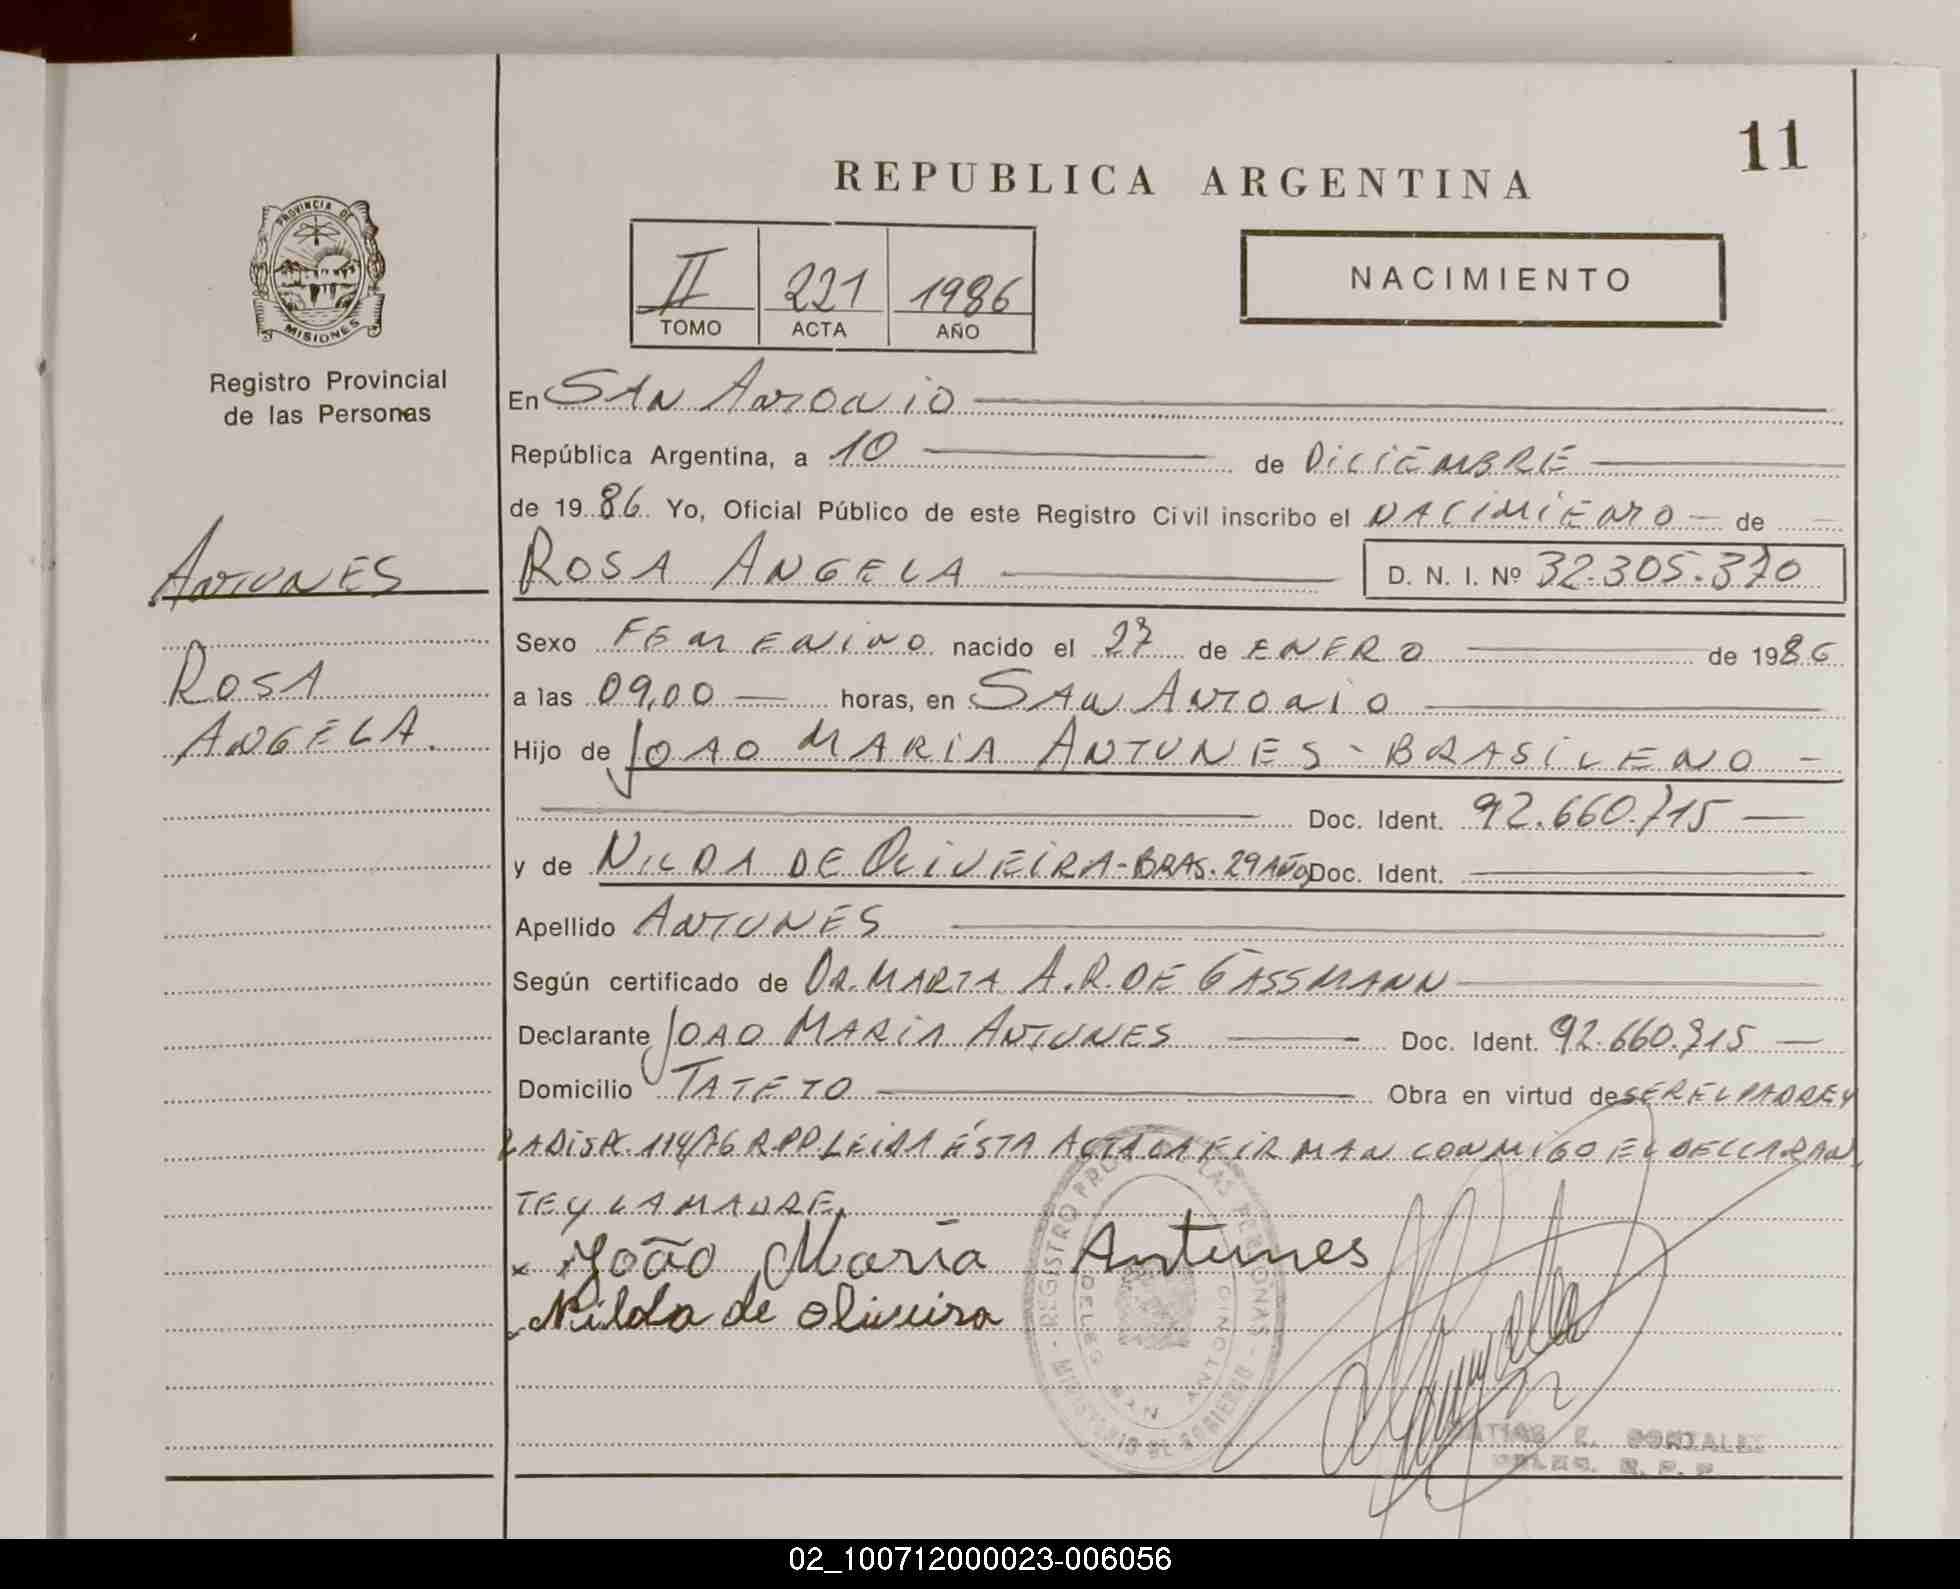 11
REPUBLICA ARGENTINA
PROVINCIA DE
MISIONES
II 221 1986
TOMO ACTA AÑO
NACIMIENTO
Registro Provincial
de las Personas
En SAN ANTONIO
República Argentina, a 10 de DICIEMBRE
de 1986 Yo, Oficial Público de este Registro Civil inscribo el NACIMIENTO de
ANTUNES
ROSA ANGELA D. N. I. Nº 32.305.370
Sexo FEMENINO nacido el 27 de ENERO de 1986
ROSA
a las 09,00 horas, en SAN ANTONIO
ANGELA.
Hijo de JOAO MARIA ANTUNES - BRASILENO -
Doc. Ident. 92.660.715
y de NILDA DE OLIVEIRA - BRAS. 29 AÑO Doc. Ident.
Apellido ANTUNES
Según certificado de DR. MARTA A. R. DE GASSMANN
Declarante JOAO MARIA ANTUNES Doc. Ident. 92.660.715
Domicilio TATETO Obra en virtud de SER EL PADRE Y
LA DISP. 114/76 R.P.P. LEIDA ÉSTA ACTA LA FIRMAN CONMIGO EL DECLARAN
TE Y LA MADRE.
x João Maria Antunes
Nilda de Oliveira
REGISTRO PROV. DE LAS PERSONAS - MINISTERIO DE GOBIERNO -
DELEG. SAN ANTONIO
E. GONZALEZ
DELEG. R. P. P.
02_100712000023-006056